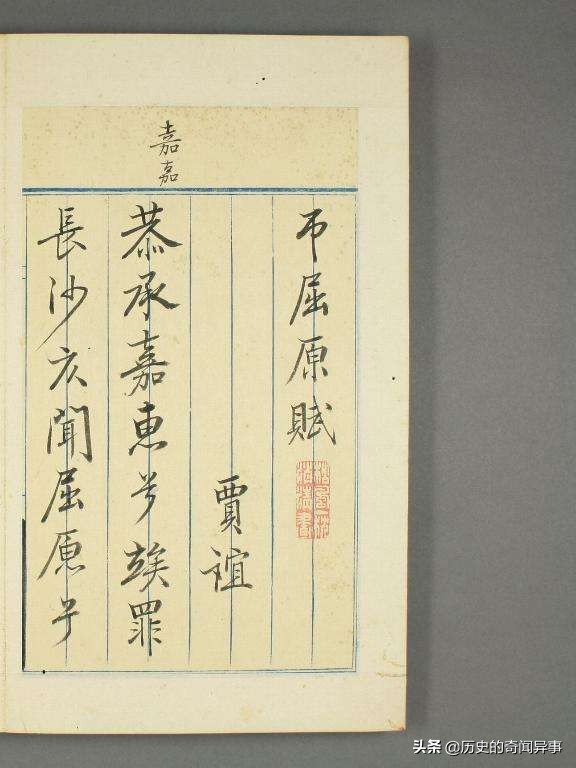 嘉
嘉
吊屈原賦
賈誼
恭承嘉惠兮竢罪
長沙仄聞屈原兮
头条 @历史的奇闻异事